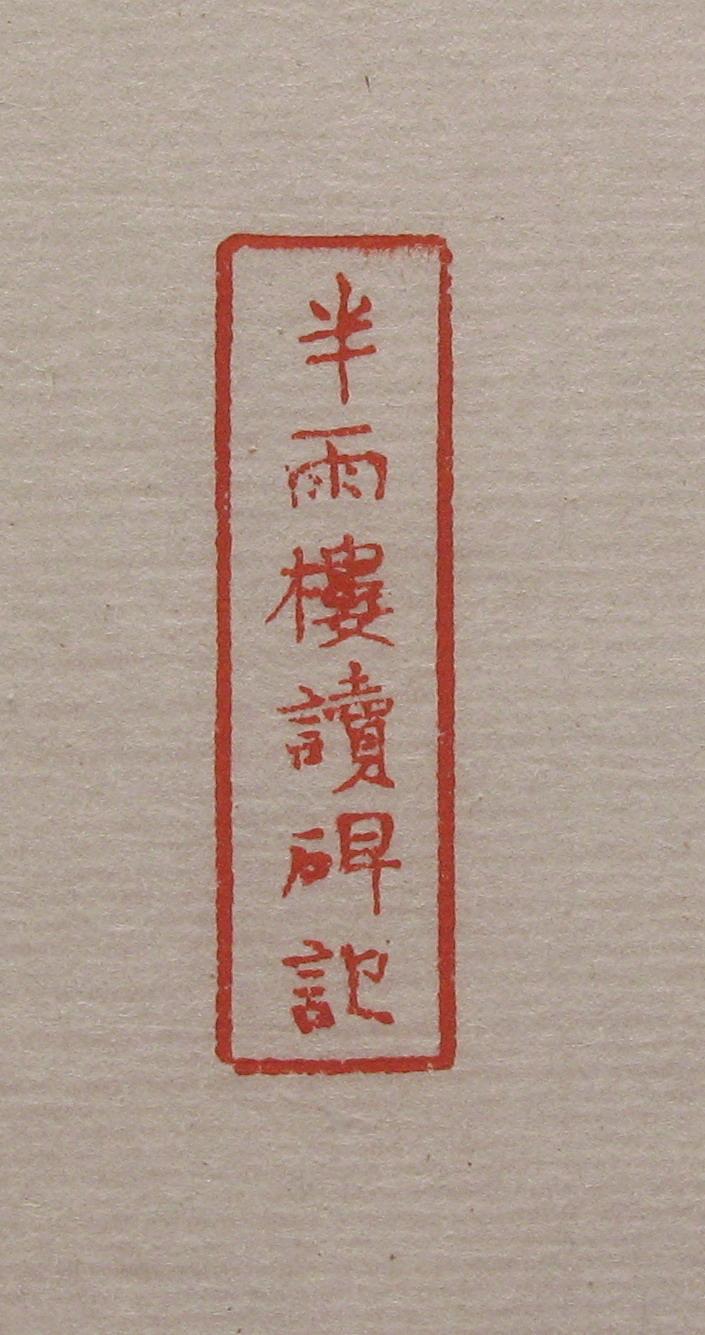 半雨樓讀碑記